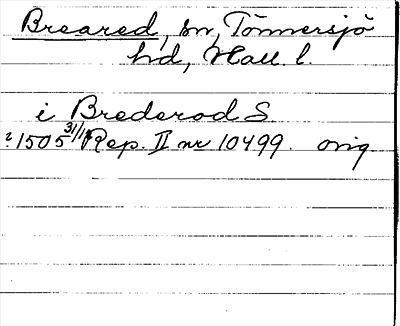 Breared, sn, Tönnersjö
hd, Hall. l.
i Brederod S
?1505 31/1 Rep. II nr 10499. orig